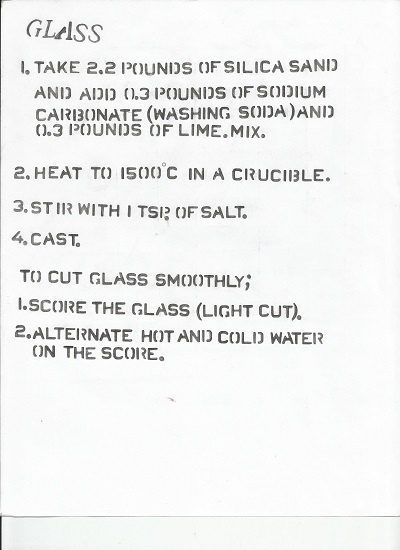 GLASS
1. TAKE 2.2 POUNDS OF SILICA SAND
AND ADD 0.3 POUNDS OF SODIUM
CARBONATE (WASHING SODA) AND
0.3 POUNDS OF LIME. MIX.
2. HEAT TO 1500°C IN A CRUCIBLE.
3. STIR WITH 1 TSP. OF SALT.
4. CAST.
TO CUT GLASS SMOOTHLY;
1. SCORE THE GLASS (LIGHT CUT).
2. ALTERNATE HOT AND COLD WATER
ON THE SCORE.